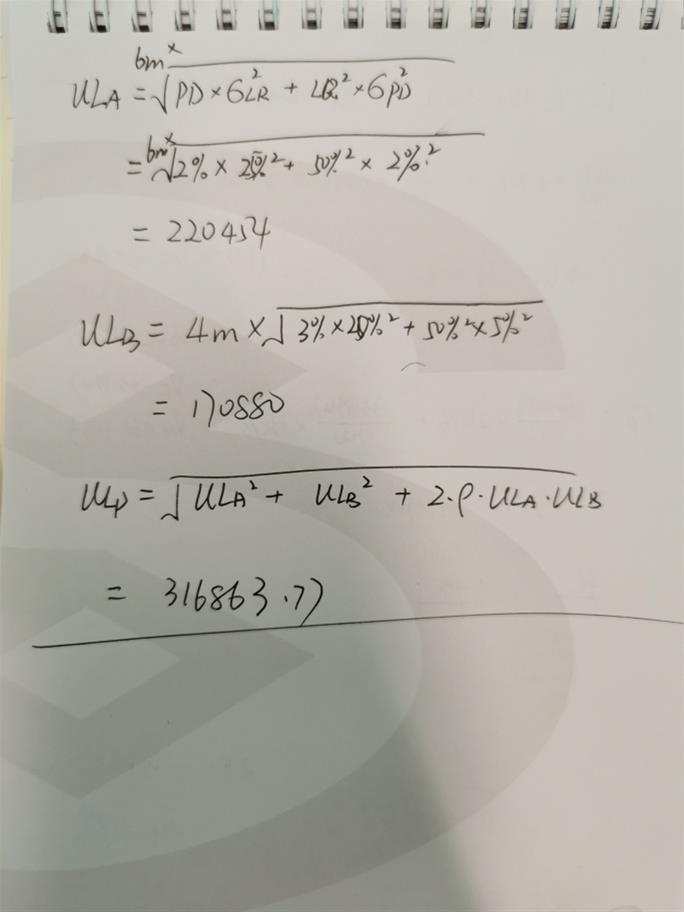 ULA = 6m × √PD × σ²LR + LR² × σ²PD
= 6m × √2% × 25%² + 50%² × 2%²
= 220454
ULB = 4m × √3% × 20%² + 50%² × 5%²
= 170880
ULP = √ULA² + ULB² + 2·ρ·ULA·ULB
= 316863.77